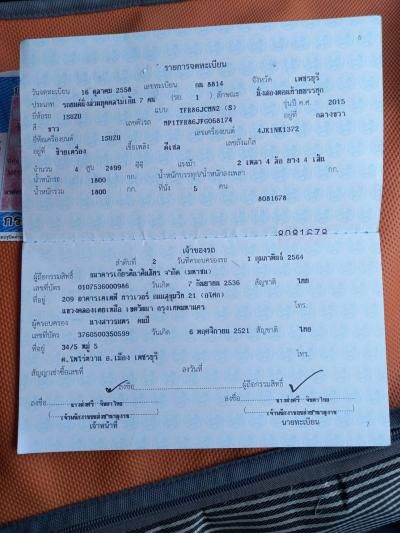 6
รายการจดทะเบียน
วันจดทะเบียน 16 ตุลาคม 2558 เลขทะเบียน กม 8814 จังหวัด เพชรบุรี
ประเภท รถยนต์นั่งส่วนบุคคลไม่เกิน 7 คน (รย. 1 ) ลักษณะ นั่งสองตอนท้ายบรรทุก
ยี่ห้อรถ ISUZU แบบ TFR86JCMN2 (S) รุ่นปี ค.ศ. 2015
สี ขาว เลขตัวรถ MP1TFR86JFG068174 อยู่ที่ กลางขวา
ยี่ห้อเครื่องยนต์ ISUZU เลขเครื่องยนต์ 4JK1NK1372
อยู่ที่ ซ้ายเครื่อง เชื้อเพลิง ดีเซล เลขถังแก๊ส
จำนวน 4 สูบ 2499 ซีซี แรงม้า 2 เพลา 4 ล้อ ยาง 4 เส้น
น้ำหนักรถ 1800 กก. น้ำหนักบรรทุก/น้ำหนักลงเพลา กก.
น้ำหนักรวม 1800 กก. ที่นั่ง 5 คน
8081678
8081678
เจ้าของรถ
ลำดับที่ 2 วันที่ครอบครองรถ 1 กุมภาพันธ์ 2564
ผู้ถือกรรมสิทธิ์ ธนาคารเกียรตินาคินภัทร จำกัด (มหาชน)
เลขที่บัตร 0107536000986 วันเกิด 7 กันยายน 2536 สัญชาติ ไทย
ที่อยู่ 209 อาคารเคเคพี ทาวเวอร์ ถนนสุขุมวิท 21 (อโศก)
แขวงคลองเตยเหนือ เขตวัฒนา กรุงเทพมหานคร โทร.
ผู้ครอบครอง นางสาว
เลขที่บัตร 3760500350599 วันเกิด 6 พฤศจิกายน 2521 สัญชาติ ไทย
ที่อยู่ 34/5 หมู่ 5
ต.โพไร่หวาน อ.เมือง เพชรบุรี โทร.
สัญญาเช่าซื้อเลขที่ ลงวันที่
ลงชื่อ ผู้ถือกรรมสิทธิ์
ลงชื่อ ลงชื่อ
เจ้าหน้าที่ นายทะเบียน
7